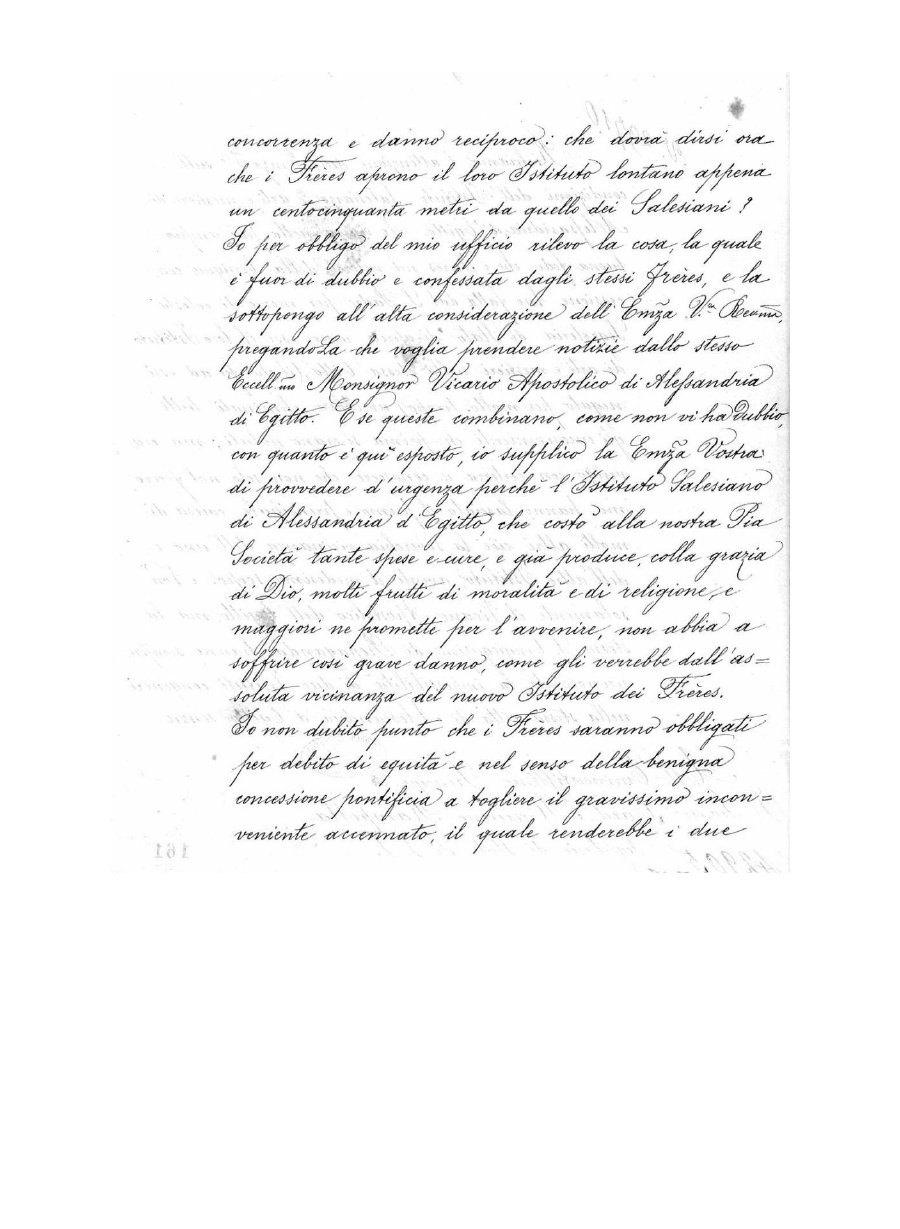 concorrenza e danno reciproco: che dovrà dirsi ora
che i Frères aprono il loro Istituto lontano appena
un centocinquanta metri da quello dei Salesiani?
Io per obbligo del mio ufficio rilevo la cosa, la quale
è fuor di dubbio e confessata dagli stessi Frères, e la
sottopongo all'alta considerazione dell'Emza V.ra Revma,
pregandoLa che voglia prendere notizie dallo stesso
Eccell.mo Monsignor Vicario Apostolico di Alessandria
di Egitto. E se queste combinano, come non vi ha dubbio,
con quanto è qui esposto, io supplico la Emza Vostra
di provvedere d'urgenza perchè l'Istituto Salesiano
di Alessandria d'Egitto, che costò alla nostra Pia
Società tante spese e cure, e già produce, colla grazia
di Dio, molti frutti di moralità e di religione, e
maggiori ne promette per l'avvenire, non abbia a
soffrire così grave danno, come gli verrebbe dall'as=
soluta vicinanza del nuovo Istituto dei Frères.
Io non dubito punto che i Frères saranno obbligati
per debito di equità e nel senso della benigna
concessione pontificia a togliere il gravissimo incon=
veniente accennato, il quale renderebbe i due
161